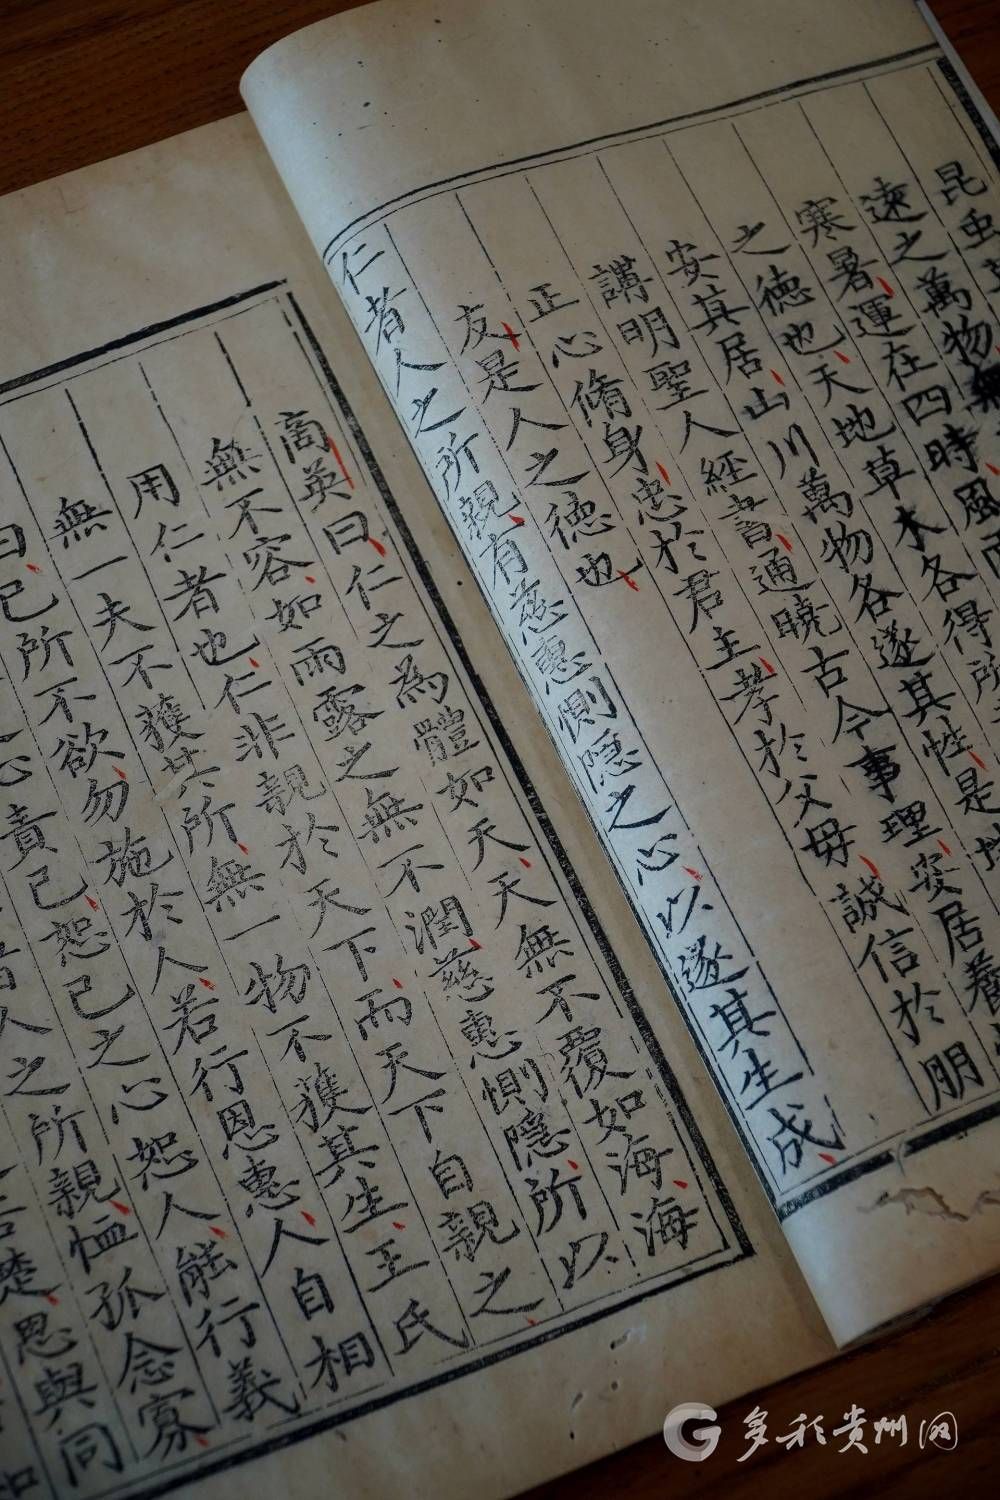 昆虫草
遠之萬物無
寒暑運在四時風雨
之德也天地草木各得所
安其居山川萬物各遂其性是
講明聖人經書通曉古今事理安居養
正心脩身忠於君主孝於父母誠信於朋
友是人之德也
仁者人之所親有慈惠惻隠之心以遂其生成
高英曰仁之為體如天天無不覆如海海
無不容如雨露之無不潤慈惠惻隠所以
用仁者也仁非親於天下而天下自親之
無一夫不獲其所無一物不獲其生王氏
曰己所不欲勿施於人若行恩惠人自相
心責己恕己之心恕人能行義
者人之所親恤孤念寡
楚恩與同
多彩贵州网